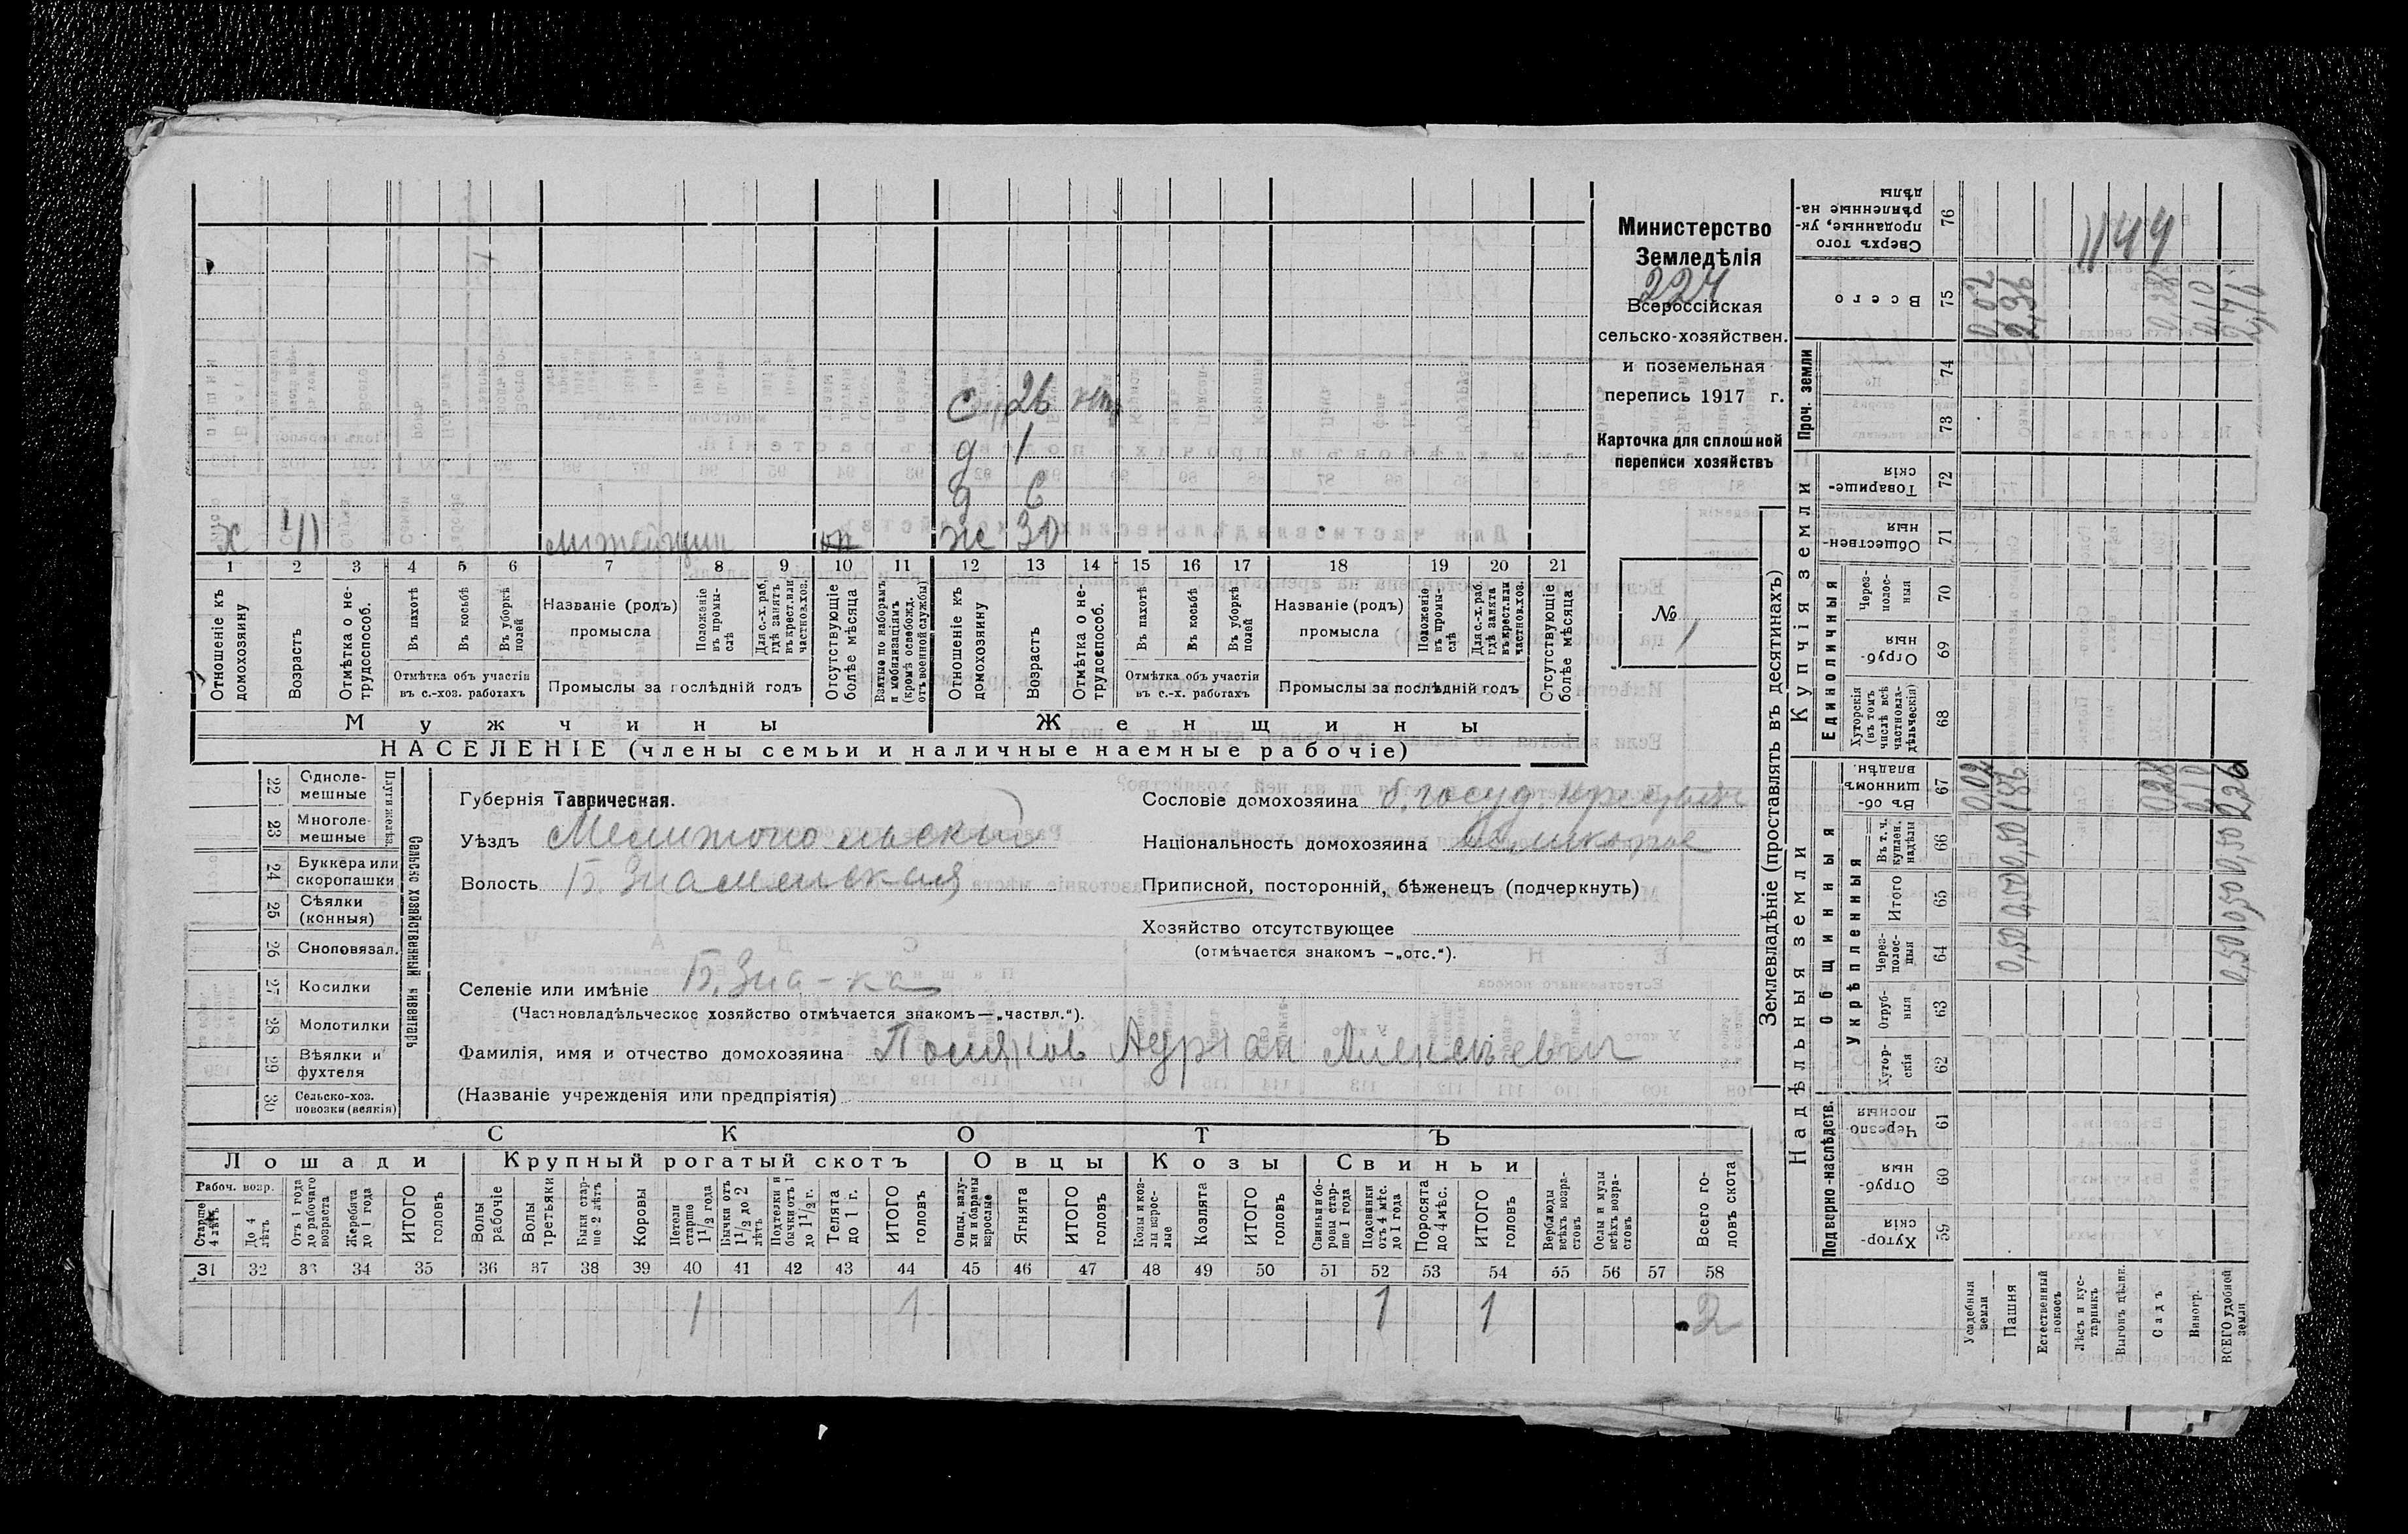 Министерство
Земледѣлія
224
Всероссійская
сельско-хозяйствен.
и поземельная
перепись 1917 г.
Карточка для сплошной
переписи хозяйствъ
№
1
26
д 1
д 6
х 41 ж 30
1 2 3 4 5 6 7 8 9 10 11 12 13 14 15 16 17 18 19 20 21
Отношеніе къ домохозяину
Возрастъ
Отмѣтка о не-трудоспособ.
Въ пахотѣ
Въ косьбѣ
Въ уборкѣ полей
Отмѣтка объ участіи въ с.-хоз. работахъ
Названіе (родъ) промысла
Положеніе въ промы-слѣ
Для с.-х. раб. гдѣ занятъ въ крест. или частнов. хоз.
Промыслы за послѣдній годъ
Отсутствующіе болѣе мѣсяца
Взятые по наборамъ и мобилизаціямъ (кромѣ освобожд. отъ военной службы)
Отношеніе къ домохозяину
Возрастъ
Отмѣтка о не-трудоспособ.
Въ пахотѣ
Въ косьбѣ
Въ уборкѣ полей
Отмѣтка объ участіи въ с.-х. работахъ
Названіе (родъ) промысла
Положеніе въ промы-слѣ
Для с.-х. раб. гдѣ занята въ крест. или частнов. хоз.
Промыслы за послѣдній годъ
Отсутствующіе болѣе мѣсяца
Мужчины Женщины
НАСЕЛЕНІЕ (члены семьи и наличные наемные рабочіе)
22 Одноле-мешные
23 Многоле-мешные
Плуги желѣз.
24 Буккера или скоропашки
25 Сѣялки (конныя)
26 Сноповязал.
27 Косилки
28 Молотилки
29 Вѣялки и фухтеля
30 Сельско-хоз. повозки (всякія)
Сельско хозяйственный инвентарь
Губернія Таврическая.
Уѣздъ Мелитопольскый
Волость Б. Знаменская
Селеніе или имѣніе Б. Зна-ка
(Частновладѣльческое хозяйство отмѣчается знакомъ—„частвл.“).
Фамилія, имя и отчество домохозяина Поляков Адриан Алексѣевич
(Названіе учрежденія или предпріятія)
Сословіе домохозяина б. госуд.
Національность домохозяина
Приписной, посторонній, бѣженецъ (подчеркнуть)
Хозяйство отсутствующее
(отмѣчается знакомъ —„отс.“).
СКОТЪ
Лошади Крупный рогатый скотъ Овцы Козы Свиньи
Рабоч. возр.
Старше 4 лѣтъ
До 4 лѣтъ
Отъ 1 года до рабочаго возраста
Жеребята до 1 года
ИТОГО головъ
Волы рабочіе
Волы третьяки
Быки стар-ше 2 лѣтъ
Коровы
Нетели старше 1 1/2 года
Бычки отъ 1 1/2 до 2 лѣтъ
Подтелки и бычки отъ 1 до 1 1/2 г.
Телята до 1 г.
ИТОГО головъ
Овцы, валу-хи и бараны взрослые
Ягнята
ИТОГО головъ
Козы и коз-лы взрос-лые
Козлята
ИТОГО головъ
Свиньи и бо-ровы стар-ше 1 года
Подсвинки отъ 4 мѣс. до 1 года
Поросята до 4 мѣс.
ИТОГО головъ
Верблюды всѣхъ возра-стовъ
Ослы и мулы всѣхъ возра-стовъ
Всего го-ловъ скота
31 32 33 34 35 36 37 38 39 40 41 42 43 44 45 46 47 48 49 50 51 52 53 54 55 56 57 58
1 1 1 1 2
Землевладѣніе (проставлять въ десятинахъ)
Надѣльныя земли
Купчія земли
Проч. земли
Подверно-наслѣдств.
Общинныя
Укрѣпленныя
Единоличныя
Хутор-скія 59
Отруб-ныя 60
Черезпо-лосныя 61
Хутор-скія 62
Отруб-ныя 63
Через-полос-ныя 64
Итого 65
Въ т. ч. куплен. надѣлы 66
Въ об-щинномъ владѣн. 67
Хуторскія (въ томъ числѣ всѣ частновла-дѣльческія) 68
Отруб-ныя 69
Через-полос-ныя 70
Обществен-ныя 71
Товарище-скія 72
73
74
Всего 75
Сверхъ того проданные, ук-рѣпленные на-дѣлы 76
Усадебныя земли 0,02 0,02
Пашня 0,50 0,50 0,50 1,86 2,36
Естественный покосъ
Лѣсъ и кус-тарникъ
Выгонъ цѣлин.
Садъ 0,28 0,28
Виногр. 0,10 0,10
ВСЕГО удобной земли 0,50 0,50 0,50 2,26 2,76
1144